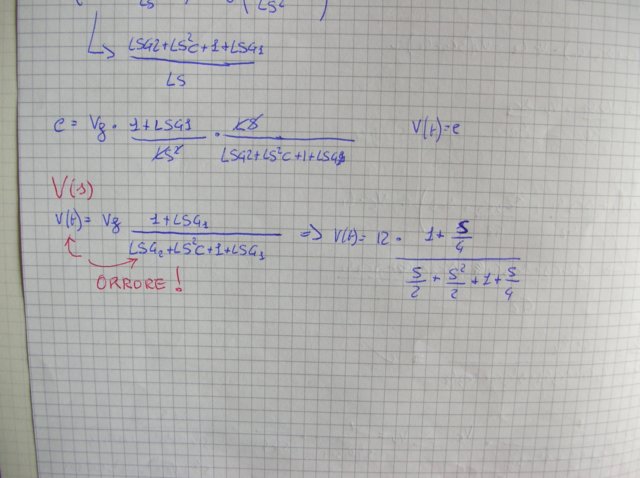 LS LS²
LSG2+LS²C+1+LSG1
LS
e = Vg · 1+LSG1 / LS² · LS / LSG2+LS²C+1+LSG1 V(t)=e
V(s)
V(t)= Vg 1+LSG₁ / LSG₂+LS²C+1+LSG₁ => V(t)= 12 · 1+ S/4 / S/2 + S²/2 +1+ S/4
ORRORE!